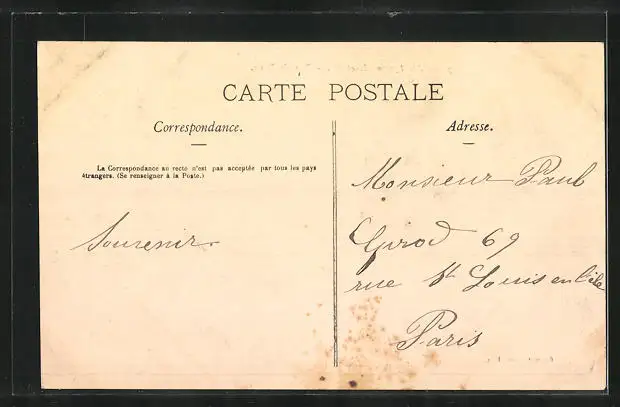 CARTE POSTALE
Correspondance.
La Correspondance au recto n'est pas acceptée par tous les pays
étrangers. (Se renseigner à la Poste.)
Souvenir
Adresse.
Monsieur Paul
Girod 69
rue St Louis en l'ile
Paris